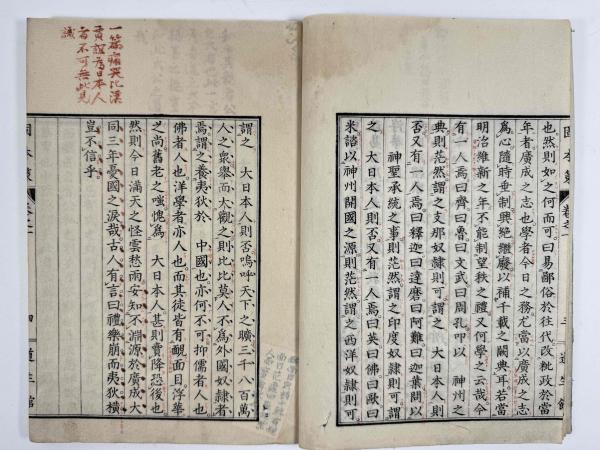 國本策 卷之一 三 道生館
也然則如之何而可曰易鄙俗於往代改秕政於當
年者廣成之志也學者今日之務尤當以廣成之志
為心隨時垂制興絶繼廢以補千載之闕典耳若當
明治維新之年不能制望秩之禮又何學之云哉今
有一人焉曰齊曰魯曰文武曰周孔叩以 神州之
典則茫然謂之支那奴隷則可謂之 大日本人則
否又有一人焉曰釋迦曰達磨曰阿難曰迦葉問以
神聖承統之事則茫然謂之印度奴隷則可謂
之 大日本人則否又有一人焉曰英曰佛曰歐曰
米諮以神州開國之源則茫然謂之西洋奴隷則可
謂之 大日本人則否嗚呼天下之曠三千八百萬
人之衆擧而大觀之則比比莫人不為外國奴隷者
焉謂之養夷狄於 中國也亦何不可抑儒者人也
佛者人也洋學者亦人也而其徒皆有靦面目浮華
之尚舊老之嗤愧為 大日本人甚則賣降恐後也
然則今日滿天之怪雲愁雨安知不淵源於廣成大
同三年憂國之淚哉古人有言曰禮樂崩而夷狄橫
豈不信乎
國本策 卷之一 四 道生館
一篇痛哭比漢
賈誼為日本人
者不可無此見
識